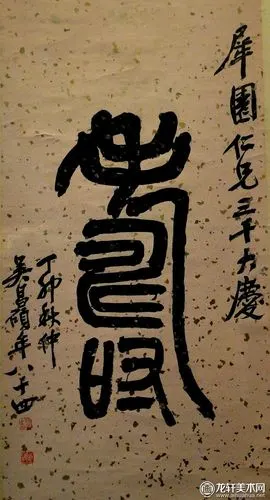 犀園仁兄三十大慶
壽
丁卯秋仲
吳昌碩年八十四
龙轩美术网
www.aihuahua.net